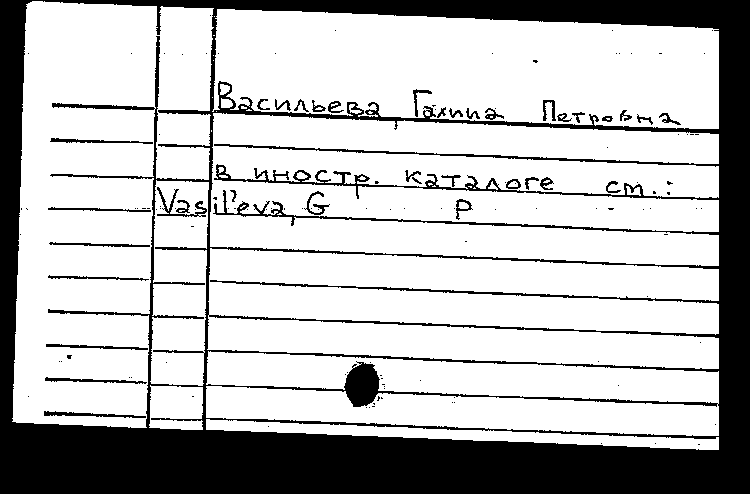 Васильева, Галина Петровна
в иностр. каталоге см.:
Vasil'eva, G P